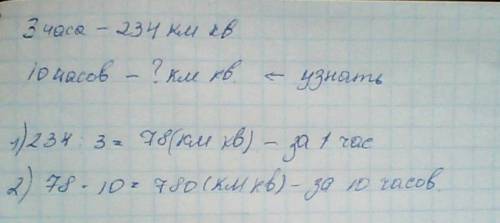 3 часа - 234 км кв
10 часов - ? км кв. ← узнать
1) 234 : 3 = 78 (км кв) - за 1 час
2) 78 · 10 = 780 (км кв) - за 10 часов.